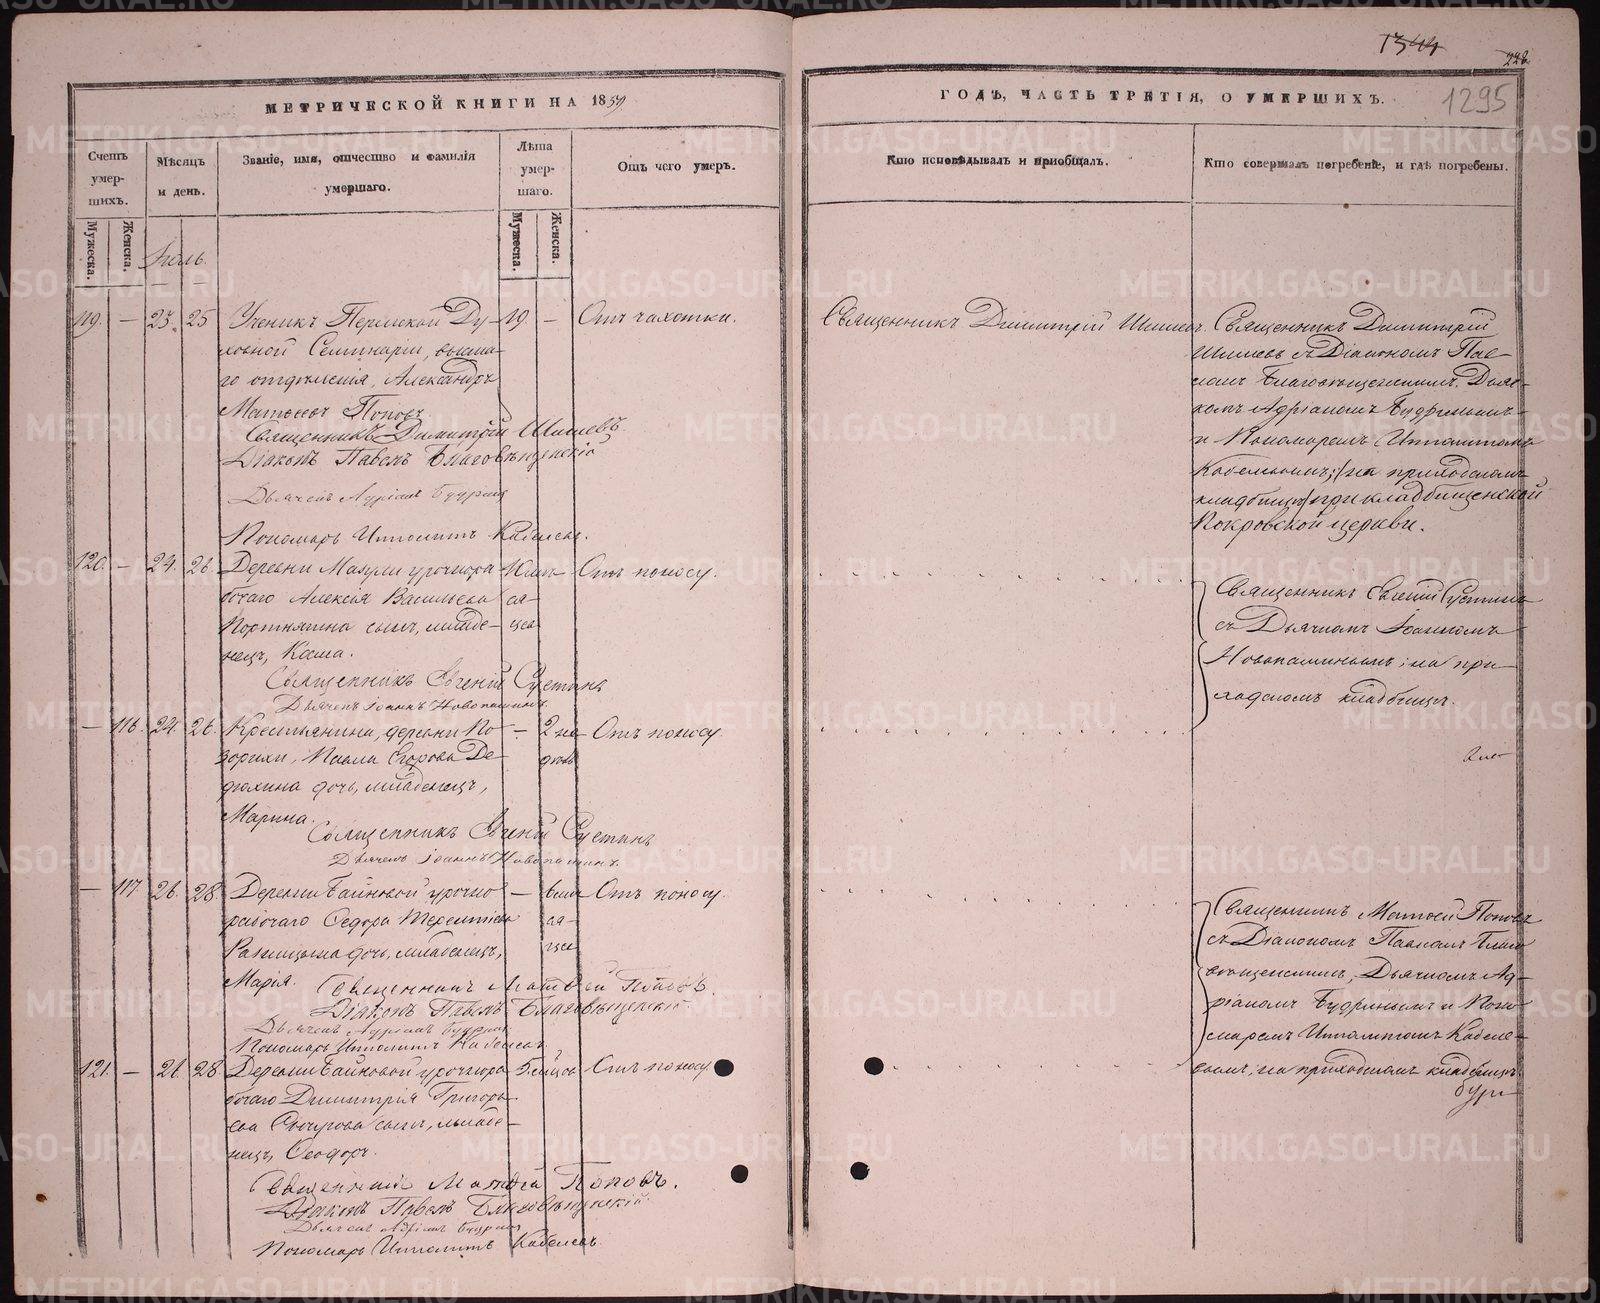 1344
228
МЕТРИЧЕСКОЙ КНИГИ НА 1859
ГОДЪ, ЧАСТЬ ТРЕТІЯ, О УМЕРШИХЪ.
1295
Счетъ умер-шихъ.
Мужеска.
Женска.
Мѣсяцъ и день.
Званіе, имя, отчество и фамилія умершаго.
Лѣта умер-шаго.
Мужеска.
Женска.
Отъ чего умеръ.
Кто исповѣдывалъ и пріобщалъ.
Кто совершалъ погребеніе, и гдѣ погребены.
Іюль.
119. — 23. 25 Ученикъ Пермской Ду- 19. — Отъ чахотки.
ховной Семинаріи, высша-
го отдѣленія, Александръ
Матвеевъ Поповъ.
Священникъ Димитрій Шишевъ.
Діаконъ Павелъ Благовѣщенскій
Дьячекъ Адріанъ Будринъ
Пономарь Ипполитъ Кобелевъ.
Священникъ Димитрій Шишевъ.
Священникъ Димитрій
Шишевъ съ Діакономъ Пав-
ломъ Благовѣщенскимъ, Дьяч-
комъ Адріаномъ Будринымъ
и Пономаремъ Ипполитомъ
Кобелевымъ; на приходскомъ
кладбищѣ при кладбищенской
Покровской церкви.
120. — 24. 26. Деревни Мазули урочнора- Отъ поносу.
бочаго Алексія Васильева
Портнягина сынъ, младе-
нецъ, Косма.
Священникъ Евгеній Сустинъ
Дьячекъ Іоаннъ Новопашинъ.
Священникъ Евгеній Сустинъ
съ Дьячкомъ Іоанномъ
Новопашинымъ; на при-
ходскомъ кладбищѣ.
— 116. 24. 26. Крестьянина, деревни По- — 2 не- Отъ поносу.
Павла Егорова Де- дѣль
дочь, младенецъ,
Марина.
Священникъ Евгеній Сустинъ
Дьячекъ Іоаннъ Новопашинъ.
— 117. 26. 28. Деревни Байновой урочно- — 6 мѣ- Отъ поносу.
рабочаго Федора Терентіева ся-
дочь, младенецъ, ца
Марія.
Священникъ Матвей Поповъ.
Діаконъ Павелъ Благовѣщенскій.
Дьячекъ Адріанъ Будринъ
Пономарь Ипполитъ Кобелевъ.
Священникъ Матвей Поповъ
съ Діакономъ Павломъ Благо-
вѣщенскимъ, Дьячкомъ Ад-
ріаномъ Будринымъ и Поно-
маремъ Ипполитомъ Кобеле-
вымъ; на приходскомъ кладбищѣ.
121. — 28 Деревни Байновой урочнора- Отъ поносу.
бочаго Димитрія Григорь-
ева сынъ, младе-
нецъ, Феодоръ.
Священникъ Матвей Поповъ.
Діаконъ Павелъ Благовѣщенскій.
Дьячекъ Адріанъ Будринъ
Пономарь Ипполитъ Кобелевъ.
METRIKI.GASO-URAL.RU